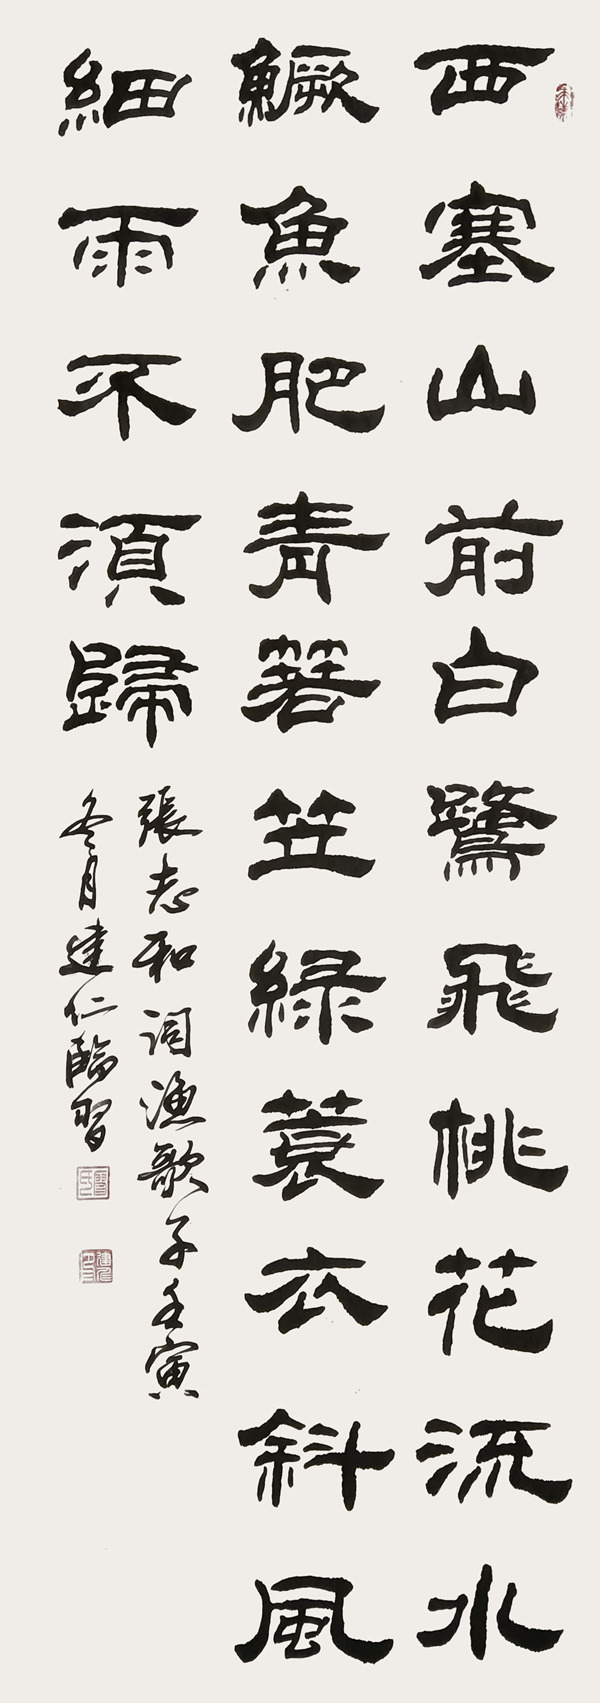 西塞山前白鷺飛桃花流水
鱖魚肥青箬笠綠蓑衣斜風
細雨不須歸
張志和詞漁歌子壬寅
冬月建仁臨習